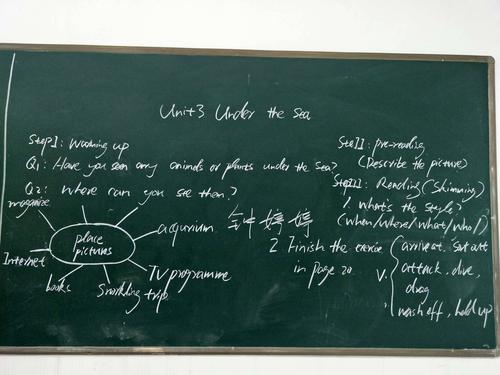 Unit 3 Under the Sea
Step I: Warming up
Q1: Have you seen any animals or plants under the Sea?
Q2: Where can you see them?
magazine
place
pictures
Internet
books
Snorkling trip
TV programme
aquarium
钟婷婷
Step II: pre-reading
(Describe the picture)
Step III: Reading (Skimming)
1. What's the style?
(when/where/what/who/)
2. Finish the exercise
in page 20.
V.
arrive at. set out
attack, dive,
drag
wash off, hold up